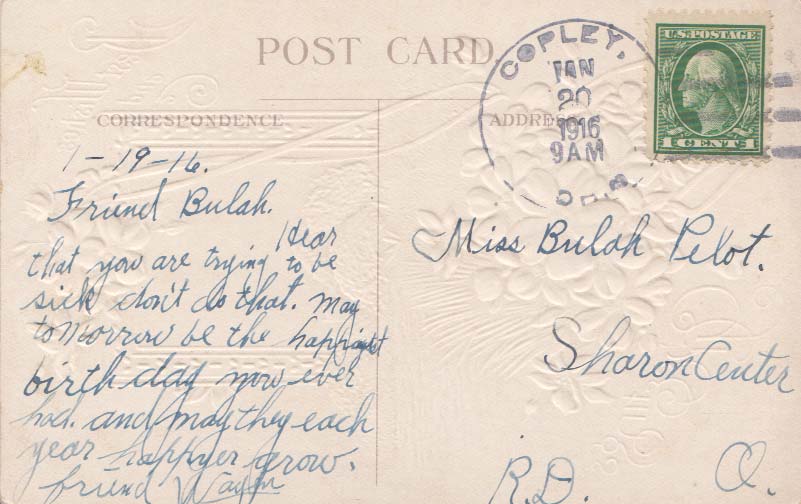 POST CARD
COPLEY,
JAN
20
1916
9AM
U.S. POSTAGE
1 CENT 1
CORRESPONDENCE
ADDRESS
1-19-16.
Friend Bulah.
Hear
that you are trying to be
sick don't do that. May
tomorrow be the happiest
birthday you ever
had. and may they each
year happyer grow.
friend
Miss Bulah Pelot.
Sharon Center
R.D. O.